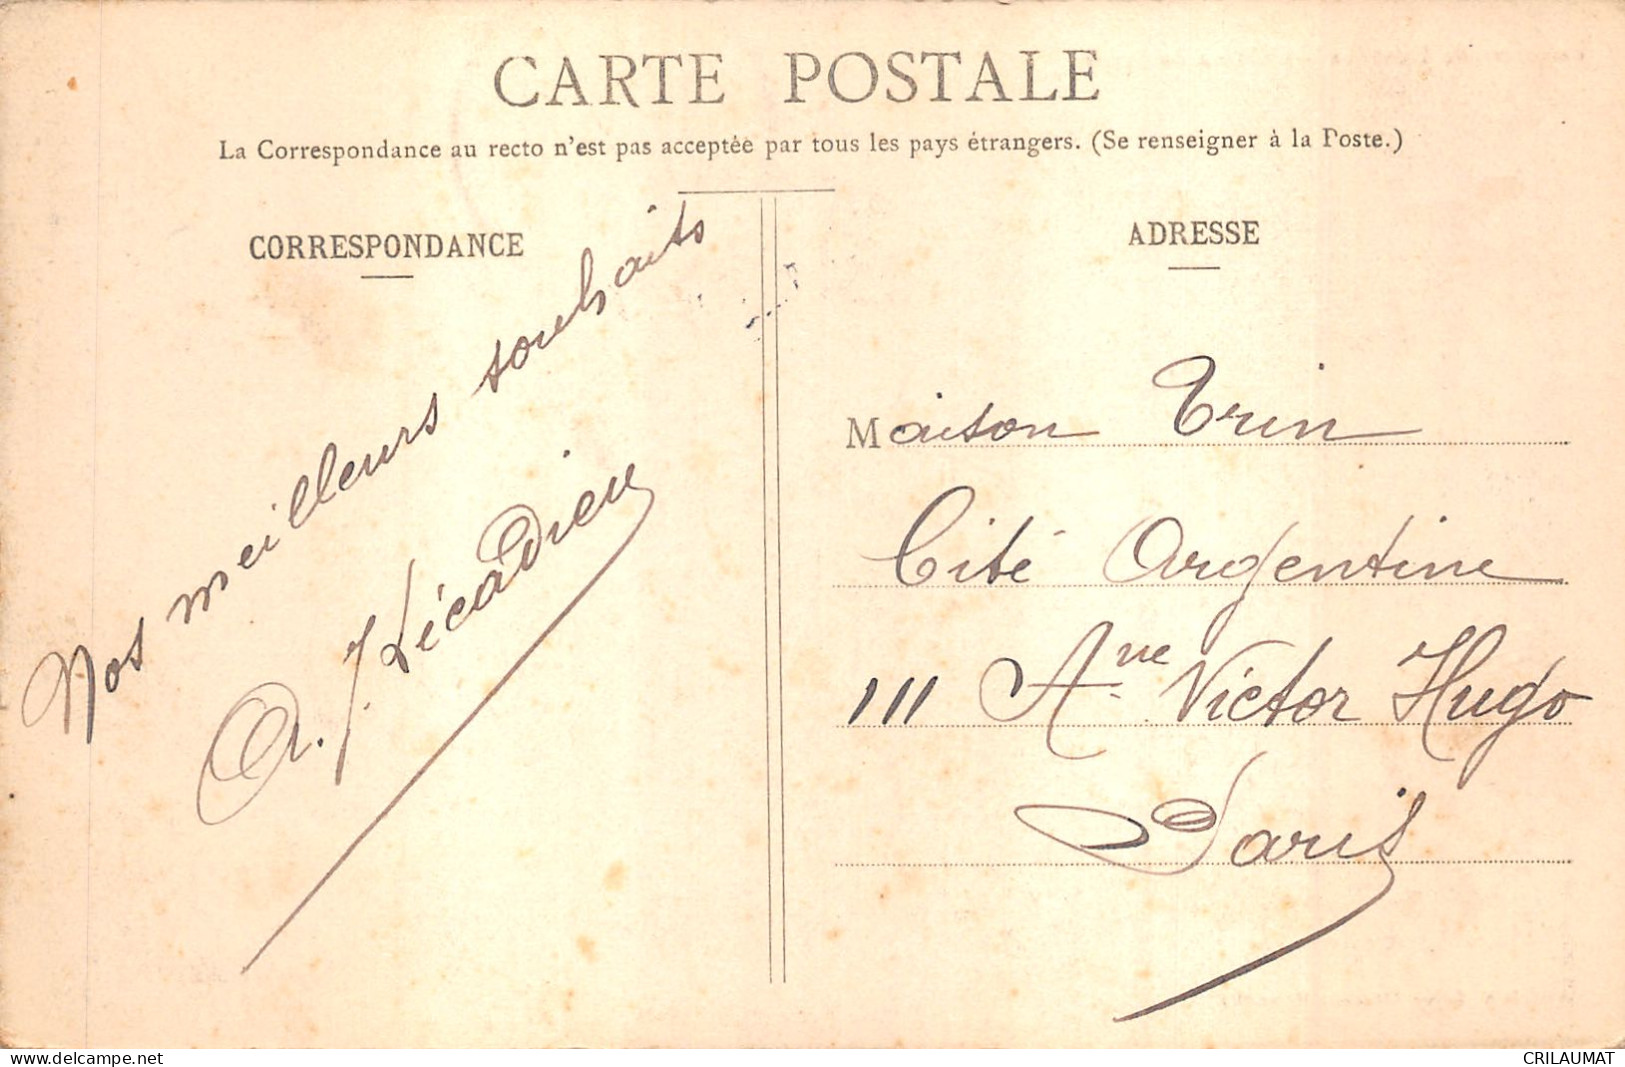 CARTE POSTALE
La Correspondance au recto n'est pas acceptée par tous les pays étrangers. (Se renseigner à la Poste.)
CORRESPONDANCE
Nos meilleurs souhaits
ADRESSE
Maison Trin
Cité Argentine
111 Ave Victor Hugo
Paris
www.delcampe.net
CRILAUMAT